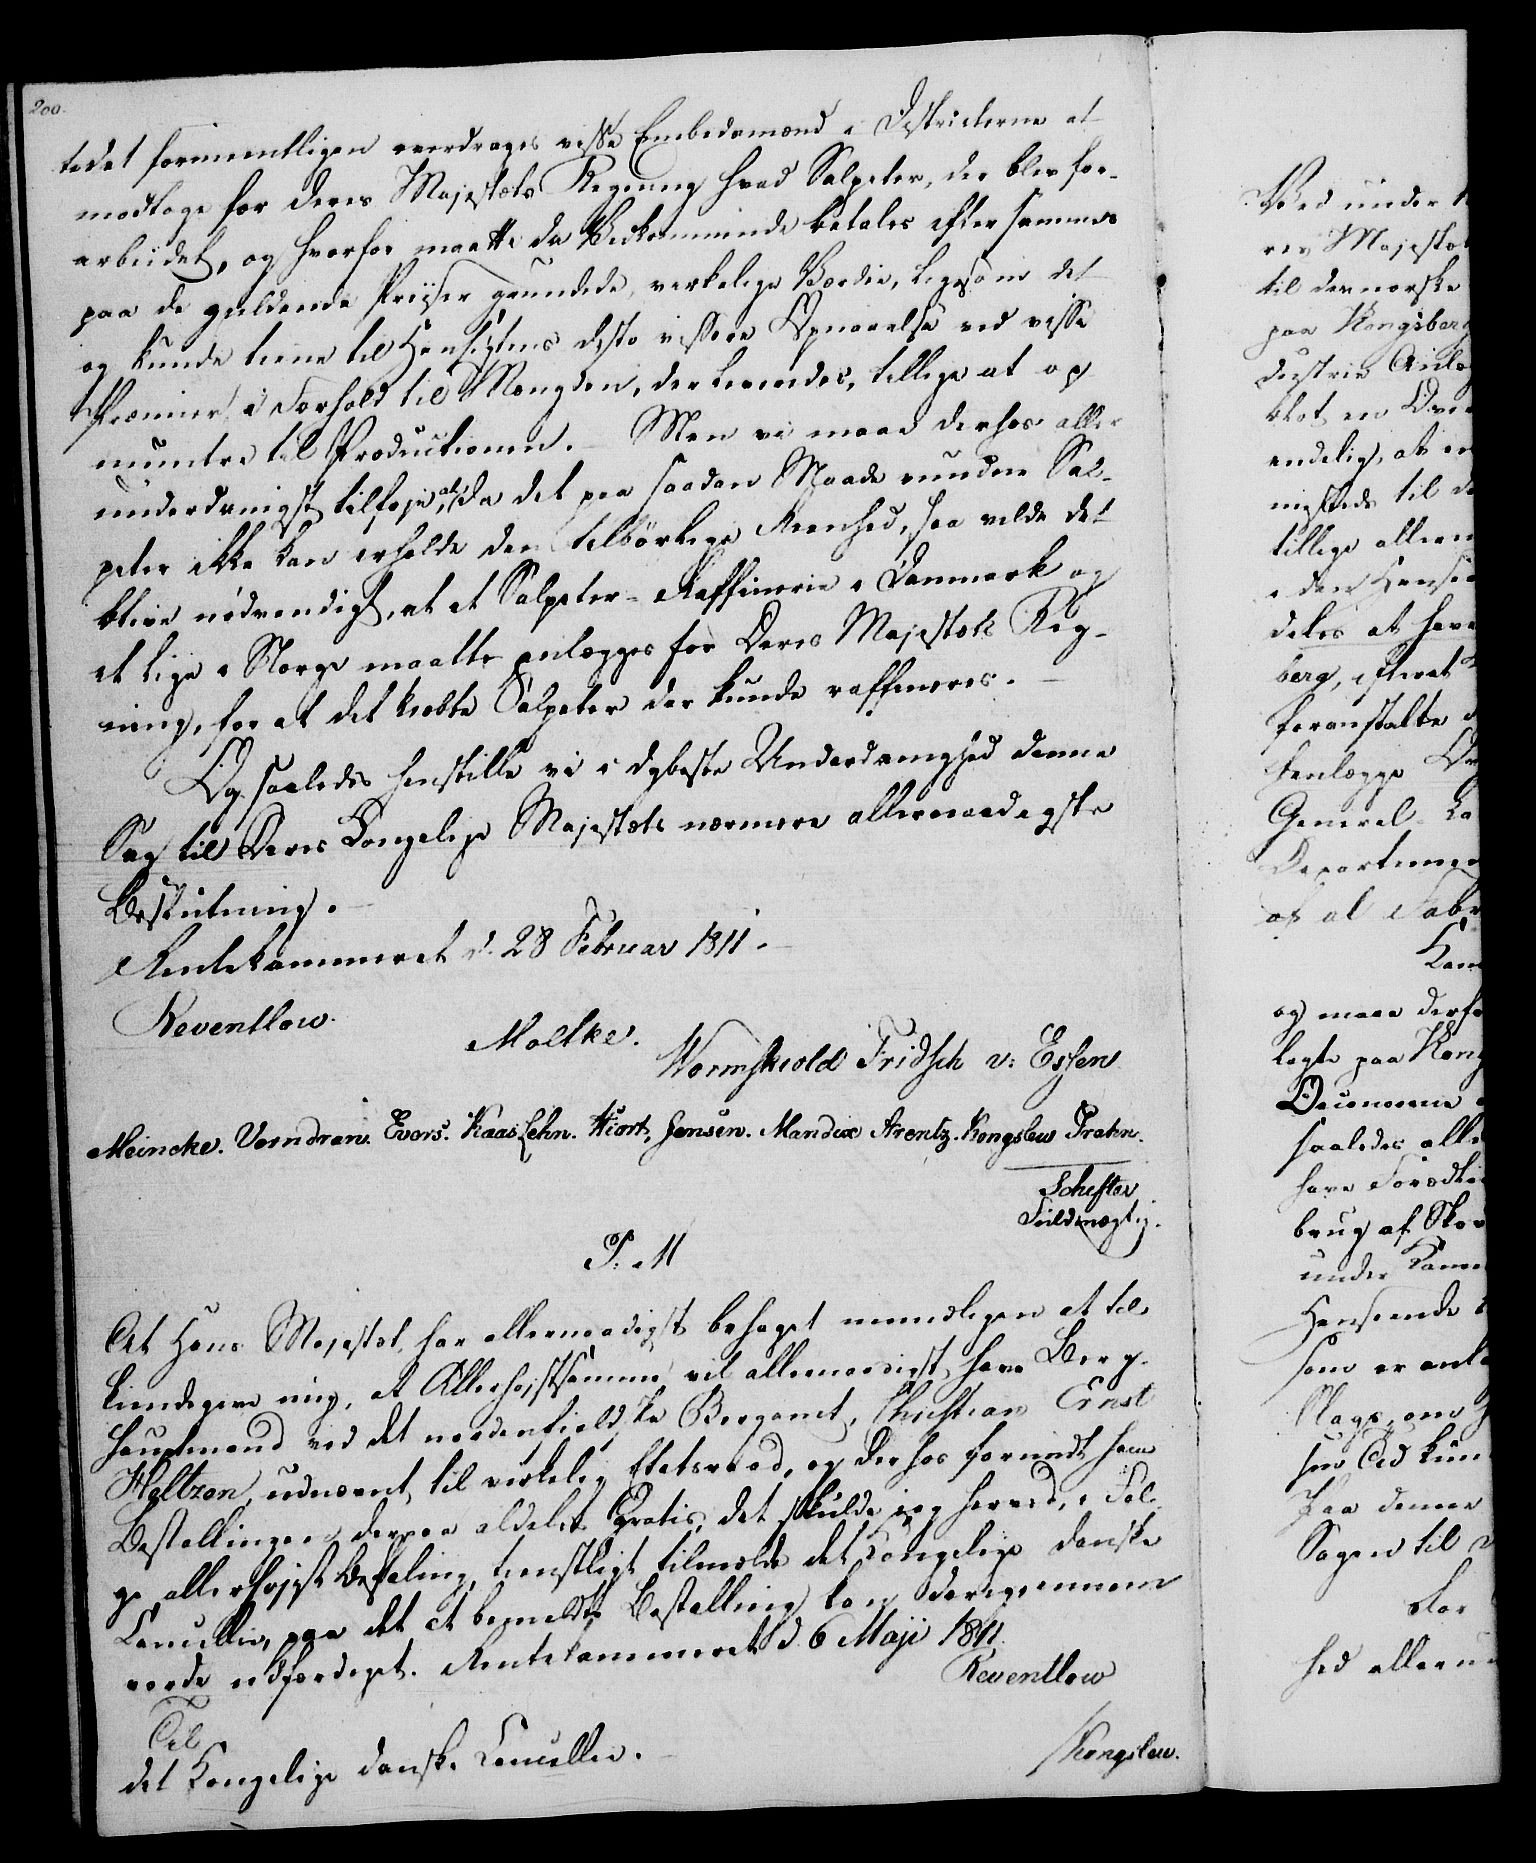 200.
tedet formeentligen overdrages visse Embedsmænd i Districterne at
modtage for Deres Majestæts Regning hvad Salpeter, der blev for-
arbeidet, og hvorfor maatte da Vedkommende betales efter sammes
paa de gieldende Priiser grundede, verkelige Værdie, ligesom det
og kunde tiene til Hensigtens desto vissere Opnaaelse ved visse
Præmier i Forhold til Mængden, der leveredes, tillige at op
muntre til Productionen. Men vi maae derhos aller
underdanigst tilføje, at da det paa saadan Maade vundne Sal-
peter ikke kan erholde den tilbörlige Reenhed, saa vilde det
blive nödvendigt, at et Salpeter-Raffinerie i Danmark og
et lige i Norge maatte anlægges for Deres Majestæts Reg-
ning, for at det kiøbte Salpeter der kunde raffineres.
Og saaledes henstille vi i dybeste Underdanighed denne
Sag til Deres Kongelige Majestæts nærmere allernaadigste
Beslutning.
Rentekammeret d. 28 Februar 1811.
Reventlow.
Moltke.
Wormskiold Fridsch v: Essen
Meincke. Vorndran. Evers. Kaas Lehn. Hiort, Jensen. Mandix Arentz. Kongslew Prahn.
Schifter
Fuldmægtig.
P. M
At Hans Majestæt har allernaadigst behaget mundtligen at til
kiendegive mig, at Allerhøjstsamme vil allernaadigst have Berg-
hauptmand ved det nordenfieldske Bergamt, Christian Ernst
Heltzen, udnævnt til virkelig Etatsraad, og derhos forundt ham
Bestallingen derpaa aldeles Gratis, det skulde jeg herved, i Føl
ge allerhøjst Befaling, tienstligst tilmelde det Kongelige danske
Cancellie, paa det at bemeldte Bestalling kan derigiennem
vorde udfærdiget. Rentekammeret d. 6 Maji 1811.
Reventlow
Til
det Kongelige danske Cancellie.
/Kongslew.
Ved under
res Majestæt
til den norske
paa Kongsberg
dustrie Anlæg
endelig, at
tillige allern
deles at have
berg, efterat
foranstalte
General-La
Departemen
af al Fabr
Kam
og maae derfo
lagte paa Kong
Oeconomie
saaledes alle
brug af Skov
under Kamm
Henseende
som er anla
Paa denne
Sagen til
hed alleru